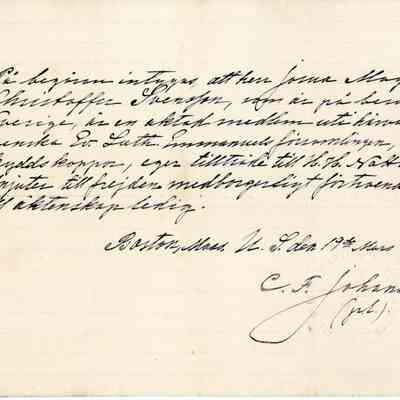 På begäran intygas, att herr Jonna May
Christoffer Svensson, som är på besö
Sverige, är en aktad medlem uti härva
enska Ev. Luth. Emmanuels församlingen,
kyddskoppor, eger tillträde till H. H. Natt
njuter till frejden medborgerligt förtroend
ll äktenskap ledig.
Boston, Mass. U. S. den 19de Mars
C. F. Johans